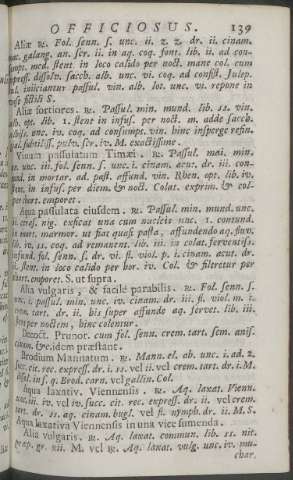 OFFICIOSUS. 139
Aliæ ℞. Fol. senn. s. unc. ii. z. z. dr. ii. cinam.
galang. an. scr. ii. in aq. coq. font. lib. ii. ad con-
mcd. stent in loco calido per noct. mane col. cum
express. dissolv. sacch. alb. unc. vi. coq. ad consist. Julep.
iniiciantur passul. vin. alb. lot. unc. vi. repone in
fictili S.
Aliæ fortiores. ℞. Passul. min. mund. lib. ii. vin.
alb. opt. lib. 1. stent in infus. per noct. m. adde sacch.
unc. iv. coq. ad consumpt. vin. hinc insperge resin.
subtiliss. pulv. scr. iv. M. exactissime.
Vinum passulatum Timæi. ℞. Passul. mai. min.
unc. iii. fol. senn. s. unc. i. cinam. acut. dr. iii. con-
in mortar. ad. past. affund. vin. Rhen. opt. lib. iv.
stent, in infus. per diem. & noct. Colat. exprim. & col-
chart. emporet.
Aqua passulata eiusdem. ℞. Passul. min. mund. unc.
nig. exsicat una cum nucleis unc. 1. contund.
marmor. ut fiat quasi pasta, affundendo aq. fluv.
lib. iv. coq. ad remanent. lib. iii. in colat. ferventiss.
infund. fol. senn. s. dr. vi. fl. viol. p. i. cinam. acut. dr.
stent. in loco calido per hor. iv. Col. & filtretur per
chart. emporet. S. ut supra.
Alia vulgaris, & facile parabilis. ℞. Fol. senn. s.
unc. i. passul. min. unc. iv. cinam. dr. iii. fl. viol. m. i.
tart. dr. ii. his super affunde aq. fervet. lib. iii.
per noctem, hinc colentur.
Decoct. Prunor. cum fol. senn. crem. tart. sem. anis.
cinam. &c. idem præstant.
Brodium Mannatum. ℞. Mann. el. ab. unc. i. ad. 2.
succ. cit. rec. express. dr. i. ss. vel ii. vel crem. tart. dr. i. M.
inf. s. q. Brod. carn. vel gallin. Col.
Aqua laxativ. Viennensis. ℞. Aq. laxat. Vienn.
unc. iii. iv. vel iv. succ. cit. rec. express. dr. ii. vel crem.
tart. dr. ss. aq. cinam. bugl. vel fl. nymph. dr. ii. M. S.
Aqua laxativa Viennensis in una vice sumenda.
Alia vulgaris. ℞. Aq. laxat. commun. lib. ss. nit.
gr. xii. M. vel ℞. Aq. laxat. vulg. unc. iv. mu-
char.